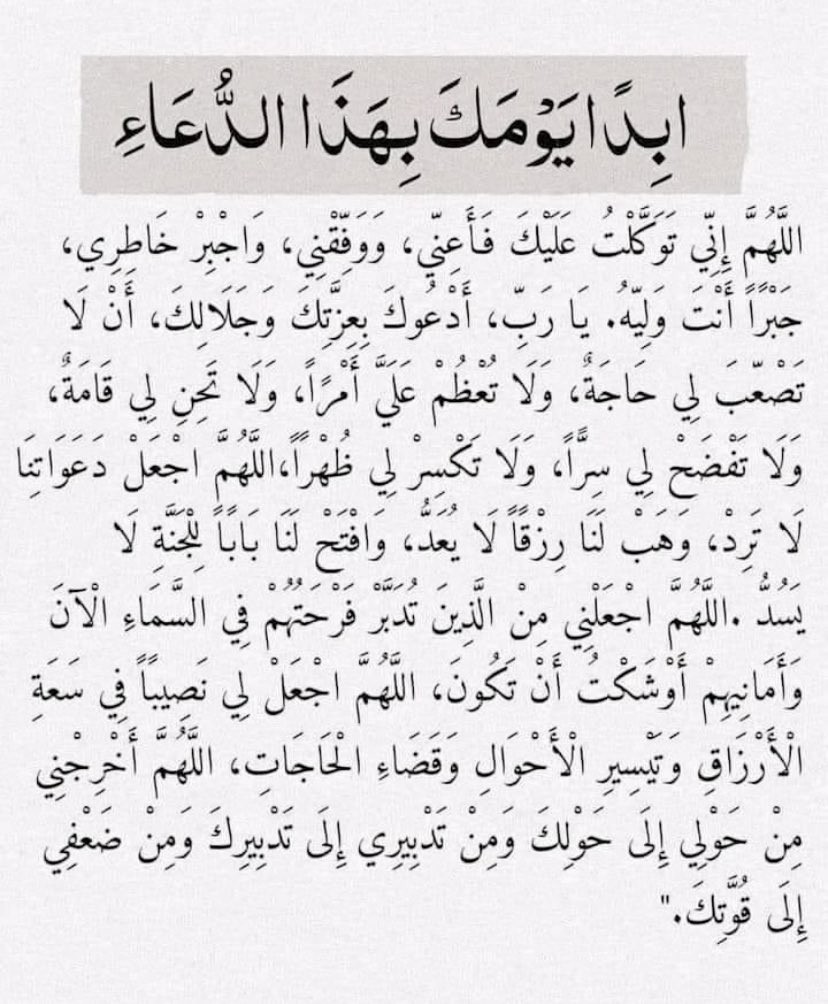 ابِدًا يَوْمَكَ بِهَذَا الدُّعَاءِ
اللَّهُمَّ إِنِّي تَوَكَّلْتُ عَلَيْكَ فَأَعِنِّي، وَوَفِّقْنِي، وَاجْبِرْ خَاطِرِي،
جَبْرًاً أَنْتَ وَلِيّهُ. يَا رَبِّ، أَدْعُوكَ بِعِزَّتِكَ وَجَلَالِكَ، أَنْ لَا
تَصْعّبَ لِي حَاجَةٌ، وَلَا تُعْظُمْ عَلَيَّ أَمْرًاً، وَلَا تَحنِ لِي قَامَةٌ،
وَلَا تَفْضَحْ لِي سِرًّاً، وَلَا تَكْسِرْ لِي ظُهْراً،اللَّهُمَّ اجْعَلْ دَعَوَاتِنَا
لَا تَرِدْ، وَهَبْ لَنَا رِزْقًاً لَا يُعَدُّ، وَافْتَحْ لَنَا بَابَاً لِلْجَنَّةِ لَا
يَسُدُّ .اللَّهُمَّ اجْعَلْنِي مِنْ الَّذِينَ تُدَبَّرْ فَرْحَتُهُمْ فِي السَّمَاءِ الْآنَ
وَأَمَانِيهِمْ أَوْشَكْتُ أَنْ تَكُونَ، اللَّهُمَّ اجْعَلْ لِي نَصِيباً فِي سَعَةِ
الْأَرْزَاقِ وَتَيْسِيرِ الْأَحْوَالِ وَقَضَاءِ الْحَاجَاتِ، اللَّهُمَّ أَخْرِجْنِي
مِنْ حَوْلِي إِلَى حَوْلِكَ وَمِنْ تَدْبِيرِي إِلَى تَدْبِيرِكَ وَمِنْ ضَعْفِي
إِلَى قُوَّتِكَ."